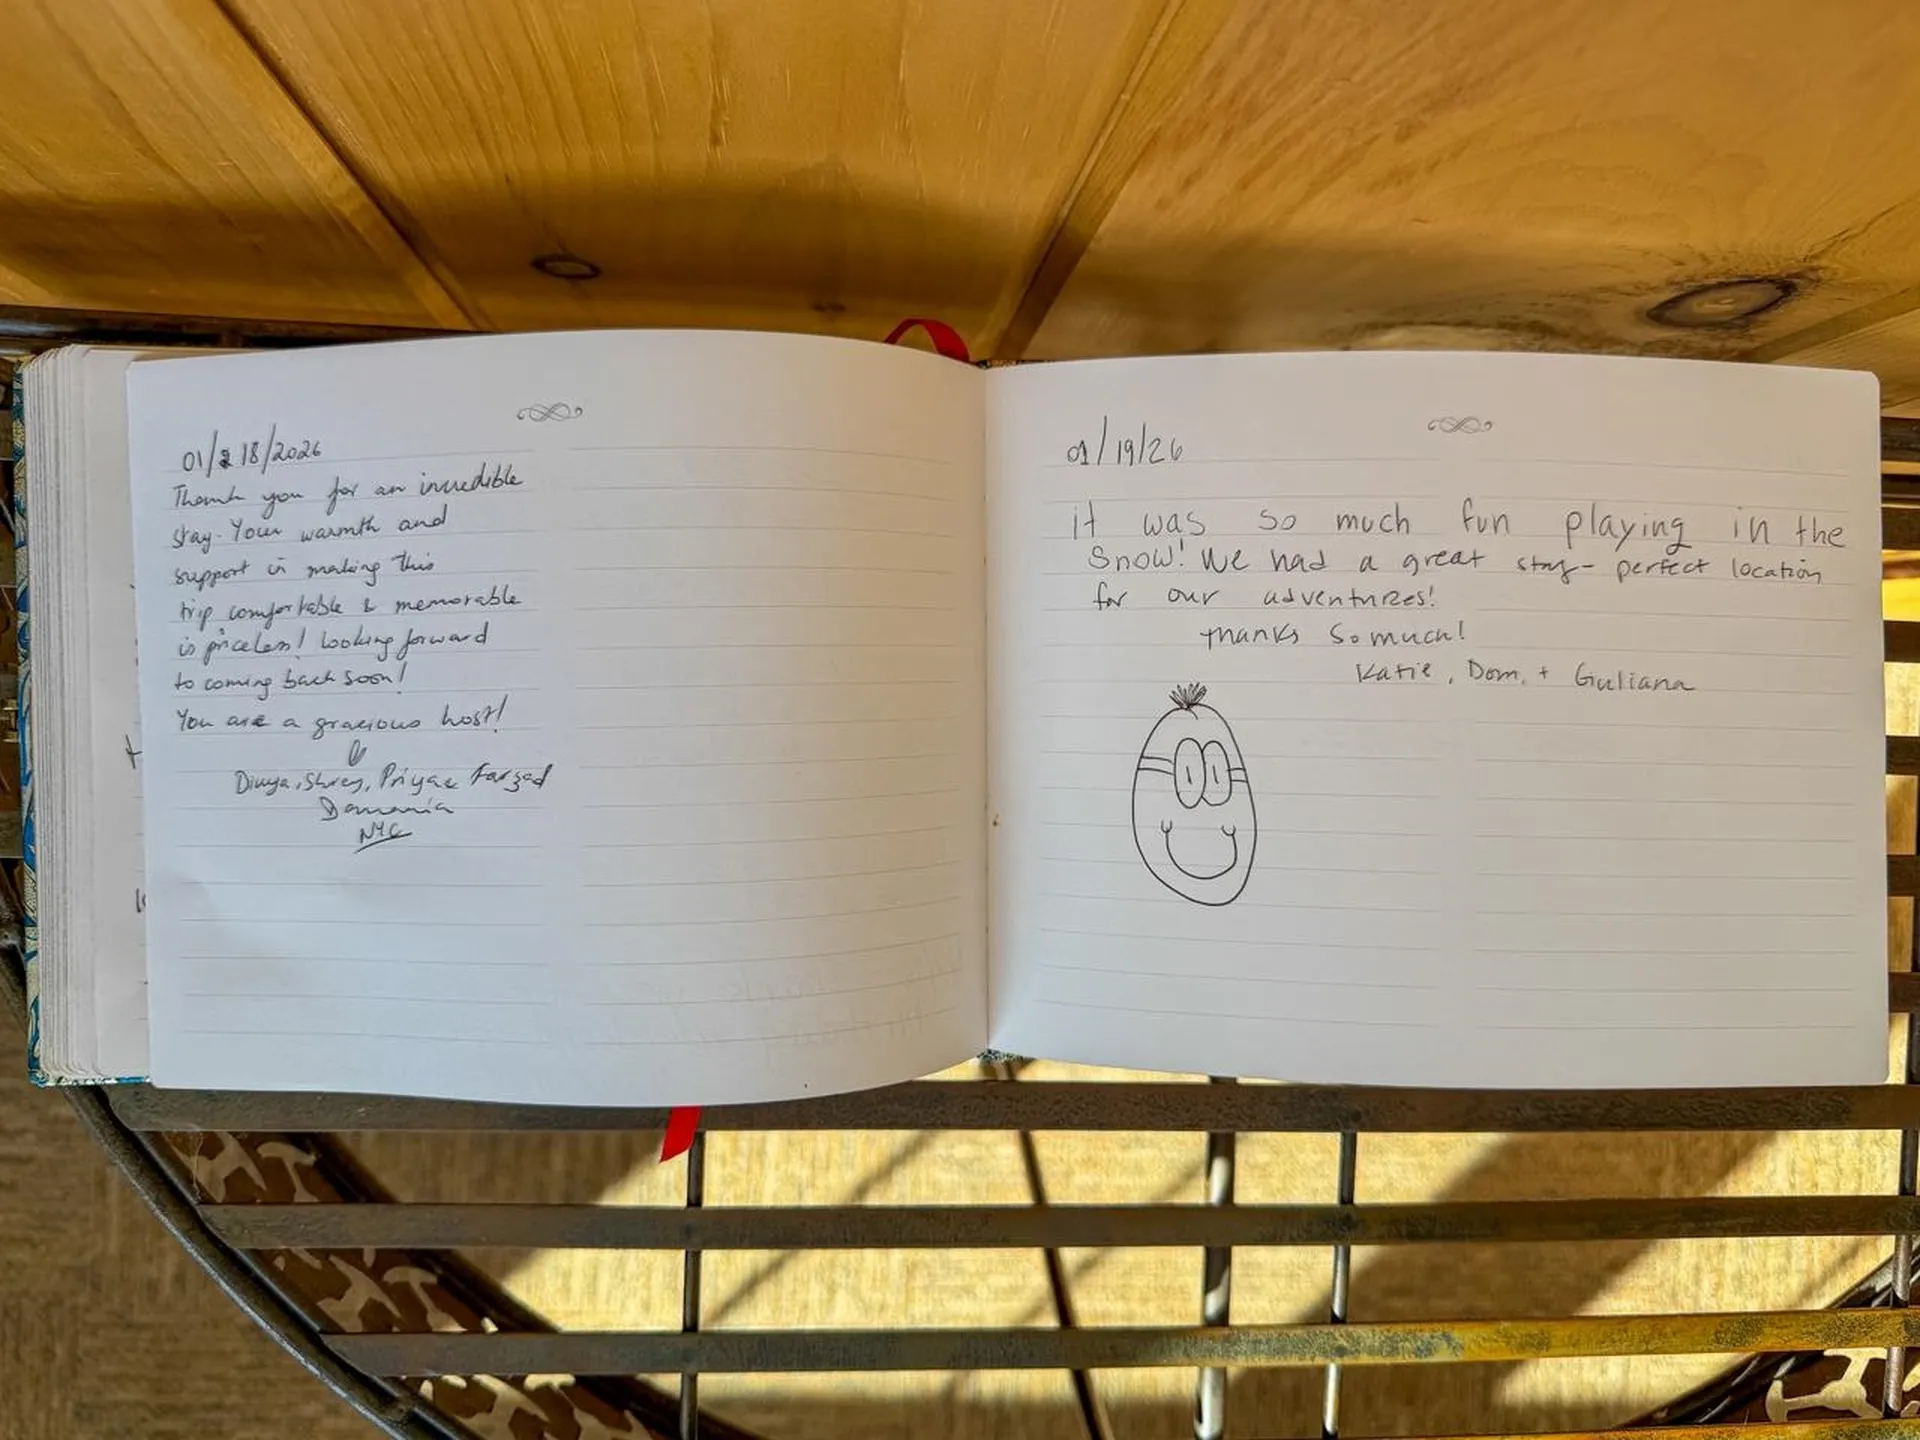 01/18/2026
Thank you for an incredible
stay. Your warmth and
support in making this
trip comfortable & memorable
is priceless! Looking forward
to coming back soon!
You are a gracious host!
Divya, Shrey, Priya & Farzad
NYC
01/19/26
it was so much fun playing in the
snow! We had a great stay - perfect location
for our adventures!
Thanks so much!
Katie, Dom, + Giuliana